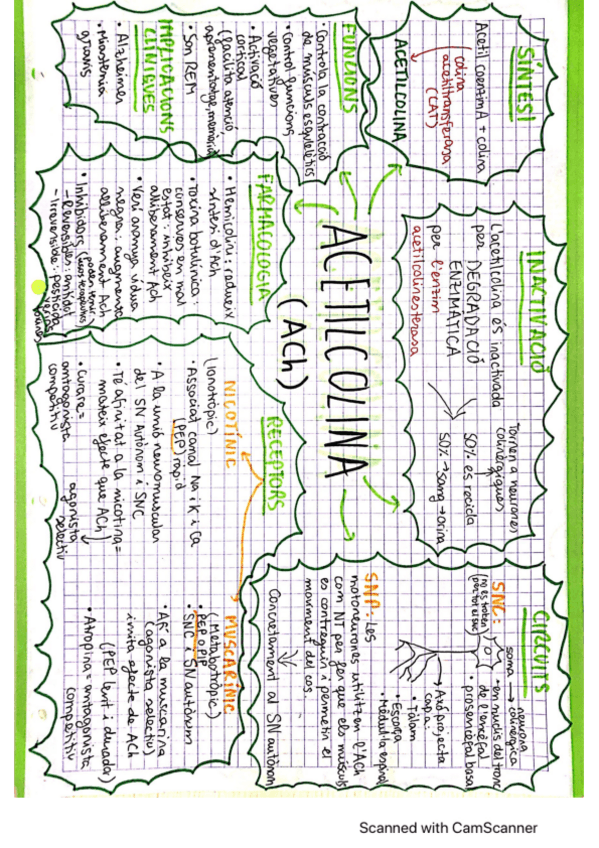 ACETILCOLINA
(ACh)
SÍNTESI
Acetil coenzimA + colina
colina
acetiltransferasa
(CAT)
ACETILCOLINA
INACTIVACIÓ
L'acetilcolina és inactivada
per DEGRADACIÓ
ENZIMÀTICA
per l'enzim
acetilcolinesterasa
Tornen a neurones
colinèrgiques
50% es recicla
50% → sang → orina
CIRCUITS
neurona
colinèrgica
soma
SNC:
(No es troben
per tot el SNC)
• en nuclis del tronc
de l'encèfal
• prosencèfal basal
Axó projecta
cap a:
• Escorça
• Tàlam
• Mèdul·la espinal
SNP: Les
motoneurones utilitzen l'ACh
com NT per fer que els músculs
es contreguin i permetin el
moviment del cos.
Concretament al SN autònom
FUNCIONS
• Controla la contracció
de músculs esquelètics
• Control funcions
vegetatives
• Activació
cortical
(facilita atenció,
aprenentatge, memòria)
• Son REM
IMPLICACIONS
CLÍNIQUES
• Alzheimer
• Miastenia
gravis
FARMACOLOGIA
• Hemicolini: redueix
síntesi d'Ach
• Toxina botulínica:
conserves en mal
estat: inhibeix
alliberament Ach
• Verí aranya vídua
negra: augmenta
alliberament Ach
• Inhibidors
- Reversibles:
- Irreversible: pesticida
RECEPTORS
NICOTÍNIC
(Ionotròpic)
• Associat canal Na i K i Ca
(PEP) ràpid
• A la unió neuromuscular
del SN Autònom i SNC
• Té afinitat a la nicotina =
mateix efecte que ACh)
agonista
selectiu
• Curare =
antagonista
competitiu
MUSCARÍNIC
(Metabotròpic)
• PEP o PIP
• SNC i SN autònom
• Af. a la muscarina
(agonista selectiu)
imita efecte de ACh
(PEP lent i durada)
• Atropina = antagonista
competitiu
Scanned with CamScanner